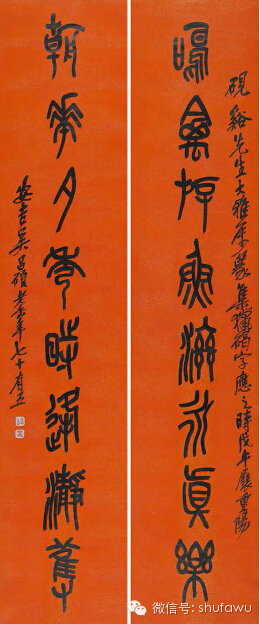 硯谿先生大雅屬篆集獵碣字應之時戊午展重陽
鳴禽魚滋真樂
朝華夕秀時
安吉吳昌碩老缶年七十有五
微信号: shufawu